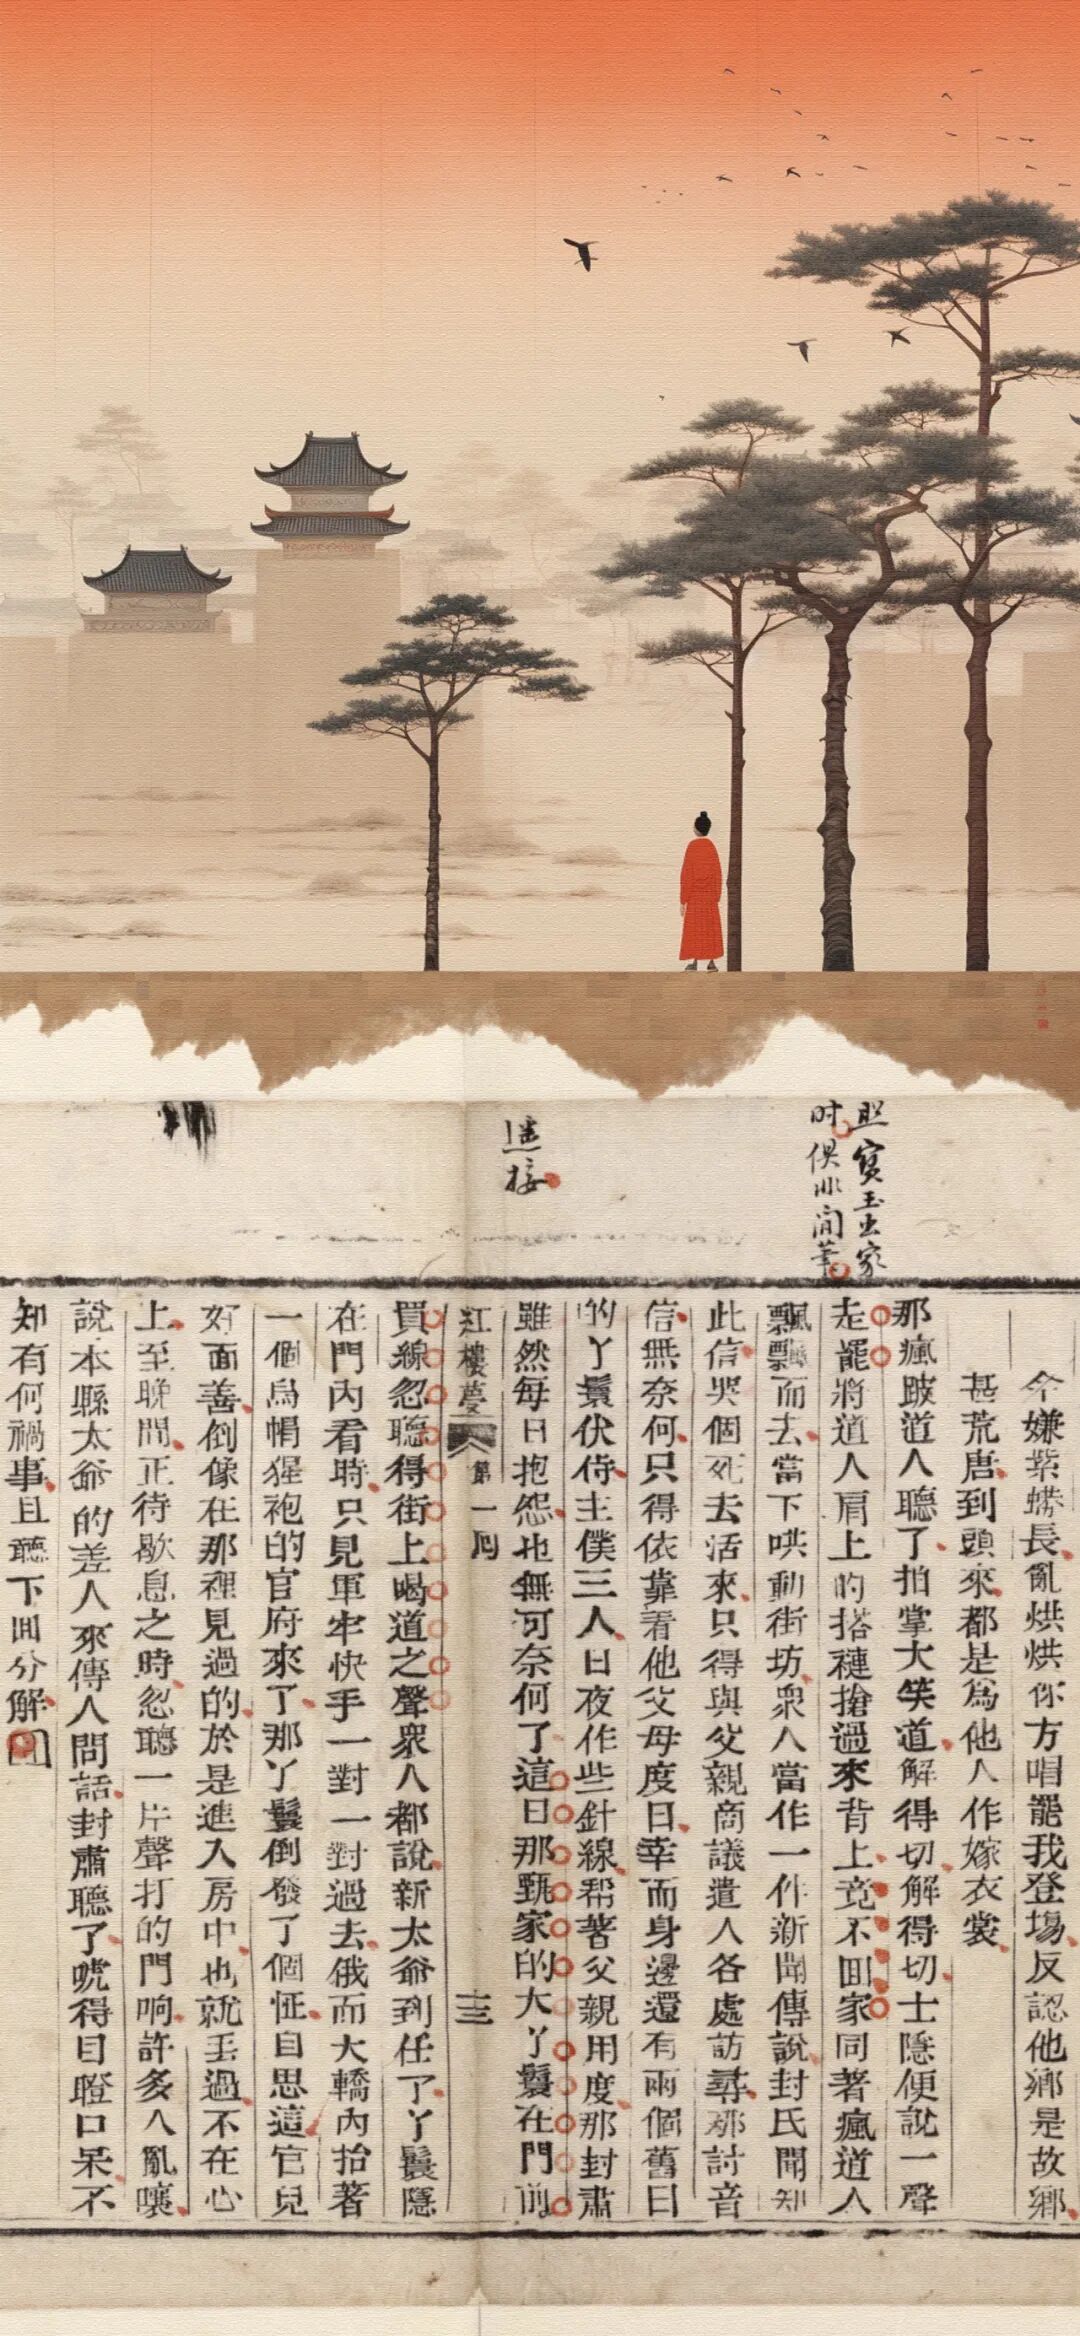 寶玉出家
时俱非閒筆
接
今嫌紫蟒長亂烘烘你方唱罷我登塲反認他鄉是故鄉
甚荒唐到頭來都是爲他人作嫁衣裳
那瘋跛道人聽了拍掌大笑道解得切解得切士隱便說一聲
走罷將道人肩上的搭褳搶過來背上竟不囬家同著瘋道人
飄飄而去當下哄動街坊衆人當作一件新聞傳說封氏聞知
此信哭個死去活來只得與父親商議遣人各處訪尋那討音
信無奈何只得依靠着他父母度日幸而身邊還有兩個舊日
的丫鬟伏侍主僕三人日夜作些針線帮著父親用度那封肅
雖然每日抱怨也無可奈何了這日那甄家的大丫鬟在門前
紅樓夢 第一囘 十三
買線忽聽得街上喝道之聲衆人都說新太爺到任了丫鬟隱
在門內看時只見軍牢快手一對一對過去俄而大轎內抬著
一個烏帽猩袍的官府來了那丫鬟倒發了個怔自思這官兒
好面善倒像在那裡見過的於是進入房中也就丟過不在心
上至晚間正待歇息之時忽聽一片聲打的門响許多人亂嚷
說本縣太爺的差人來傳人問話封肅聽了唬得目瞪口呆不
知有何禍事且聽下囬分解